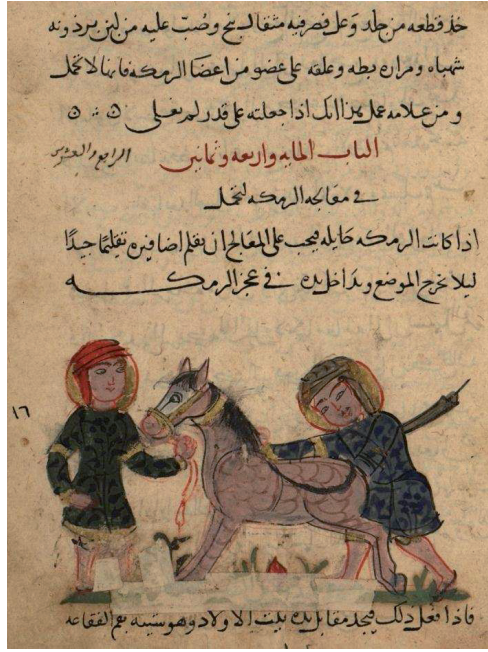 خذ قطعه من جلد وعل فصر فيه مثقال بنج وصُب عليه من لبن برذونه
شهباه ومراره بطه وعلقه على عضو من اعضا الرمكه فانها لا تحمل
ومن علامه عمل هذا انك اذا جعلته على قدر لم يغلى
الباب المايه واربعه وثمانين
الرابع والعشرون
في معالجه الرمكه لتحمل
اذا كانت الرمكه حايله فيجب على المعالج ان يقلم اضافيره تقليمًا جيدًا
ليلا تخرج الموضع ويداخل يده في عجز الرمكه
١٦
فاذا فعل ذلك فيجد مقابل يده بيت الاولاد وهو شبيه بفم الفقاعه